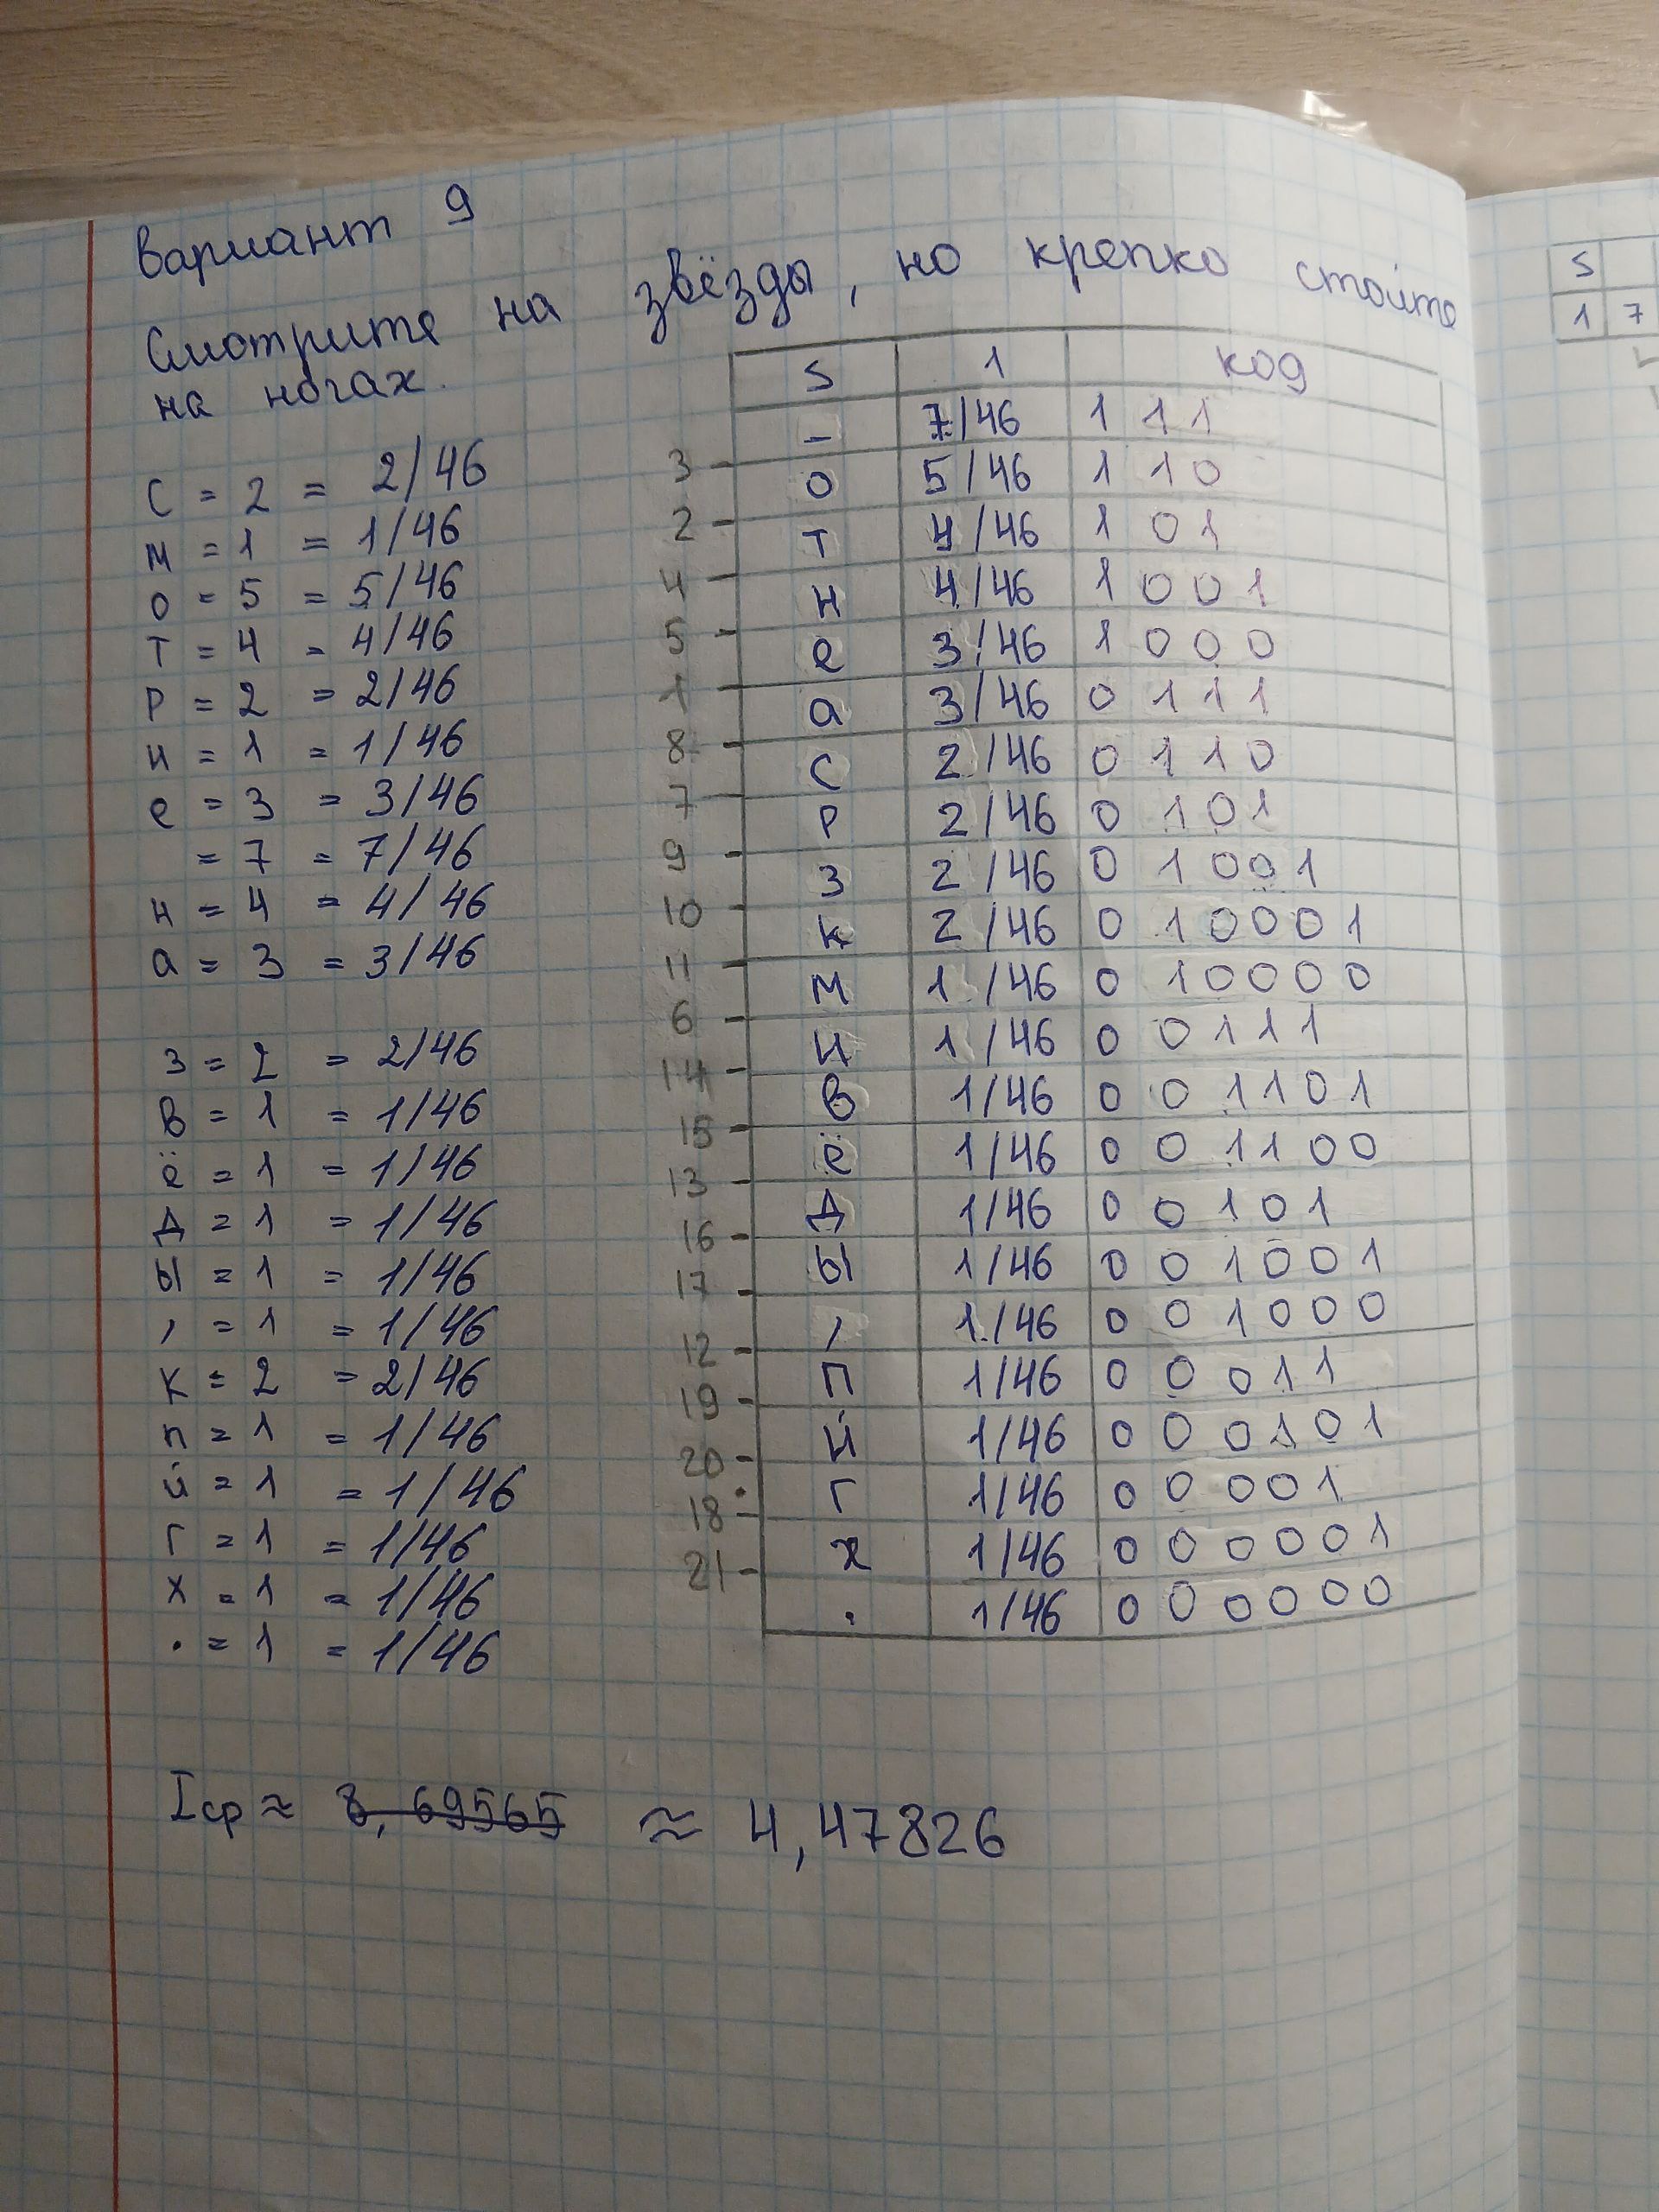 Вариант 9
Смотрите на звёзды, но крепко стойте
на ногах.
С = 2 = 2/46
м = 1 = 1/46
о = 5 = 5/46
т = 4 = 4/46
р = 2 = 2/46
и = 1 = 1/46
е = 3 = 3/46
= 7 = 7/46
н = 4 = 4/46
а = 3 = 3/46
з = 2 = 2/46
в = 1 = 1/46
ё = 1 = 1/46
д = 1 = 1/46
ы = 1 = 1/46
, = 1 = 1/46
к = 2 = 2/46
п = 1 = 1/46
й = 1 = 1/46
г = 1 = 1/46
х = 1 = 1/46
. = 1 = 1/46
S 1 код
_ 7/46 1 1 1
3 -
о 5/46 1 1 0
2 -
т 4/46 1 0 1
4 -
н 4/46 1 0 0 1
5 -
е 3/46 1 0 0 0
1 -
а 3/46 0 1 1 1
8 -
с 2/46 0 1 1 0
7 -
р 2/46 0 1 0 1
9 -
з 2/46 0 1 0 0 1
10 -
к 2/46 0 1 0 0 0 1
11 -
м 1/46 0 1 0 0 0 0
6 -
и 1/46 0 0 1 1 1
14 -
в 1/46 0 0 1 1 0 1
15 -
ё 1/46 0 0 1 1 0 0
13 -
д 1/46 0 0 1 0 1
16 -
ы 1/46 0 0 1 0 0 1
17 -
, 1/46 0 0 1 0 0 0
12 -
п 1/46 0 0 0 1 1
19 -
й 1/46 0 0 0 1 0 1
20 -
г 1/46 0 0 0 0 1
18 -
х 1/46 0 0 0 0 0 1
21 -
. 1/46 0 0 0 0 0 0
Iср ≈ 8,69565 ≈ 4,47826
S
1 7